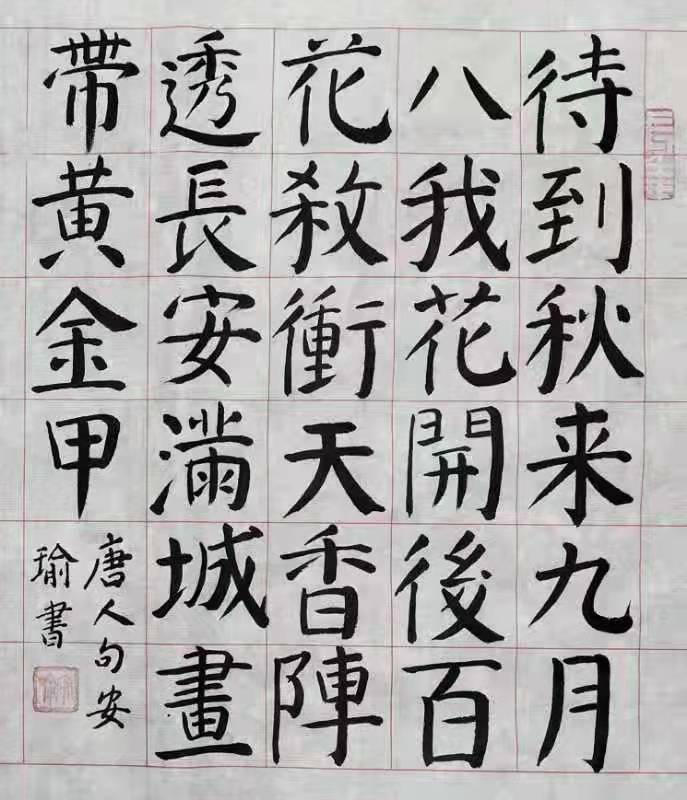 待到秋来九月
八我花開後百
花殺衝天香陣
透長安滿城畫
帶黄金甲
唐人句安
瑜書